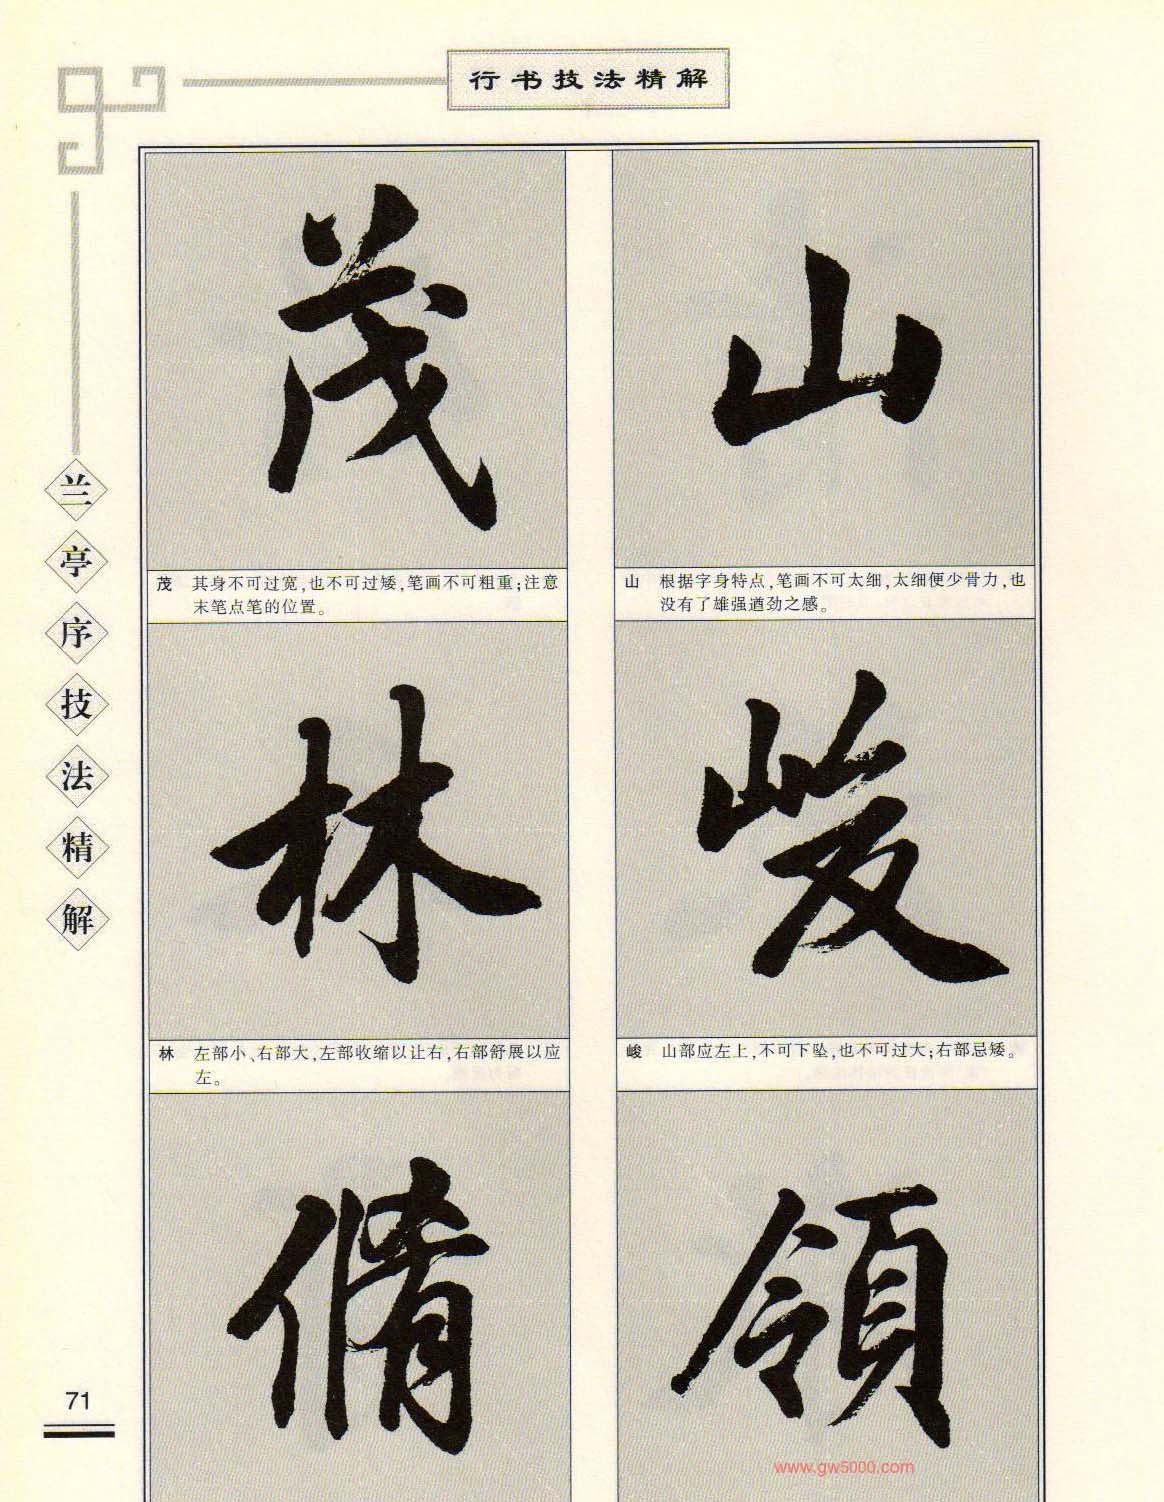 行书技法精解
兰亭序技法精解
茂
山
茂 其身不可过宽,也不可过矮,笔画不可粗重;注意
末笔点笔的位置。
山 根据字身特点,笔画不可太细,太细便少骨力,也
没有了雄强遒劲之感。
林
峻
林 左部小、右部大,左部收缩以让右,右部舒展以应
左。
峻 山部应左上,不可下坠,也不可过大;右部忌矮。
脩
領
71
www.gw5000.com